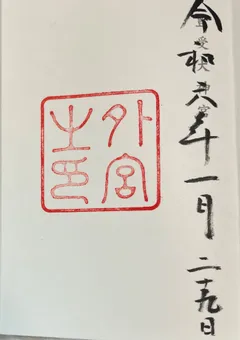 令和六年一月二十九日
外宮
之印